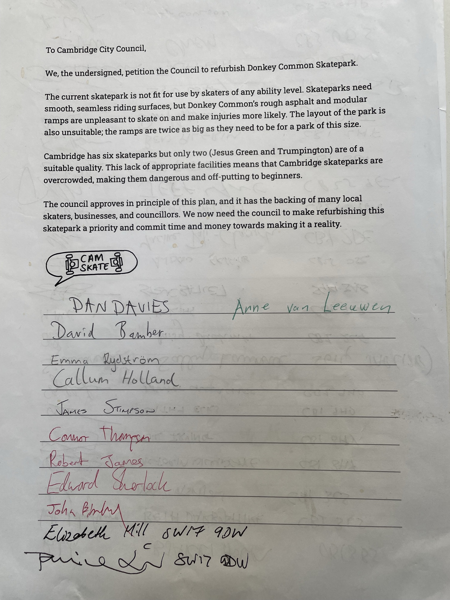 To Cambridge City Council,
We, the undersigned, petition the Council to refurbish Donkey Common Skatepark.
The current skatepark is not fit for use by skaters of any ability level. Skateparks need
smooth, seamless riding surfaces, but Donkey Common's rough asphalt and modular
ramps are unpleasant to skate on and make injuries more likely. The layout of the park is
also unsuitable; the ramps are twice as big as they need to be for a park of this size.
Cambridge has six skateparks but only two (Jesus Green and Trumpington) are of a
suitable quality. This lack of appropriate facilities means that Cambridge skateparks are
overcrowded, making them dangerous and off-putting to beginners.
The council approves in principle of this plan, and it has the backing of many local
skaters, businesses, and councillors. We now need the council to make refurbishing this
skatepark a priority and commit time and money towards making it a reality.
CAM
SKATE
DAN DAVIES Anne van Leeuwen
David Bamber
Emma Rydström
Callum Holland
JAMES STIMPSON
Connor Thompson
Robert James
Edward Sherlock
John
Elizabeth Mill SW17 9DW
SW17 9DW